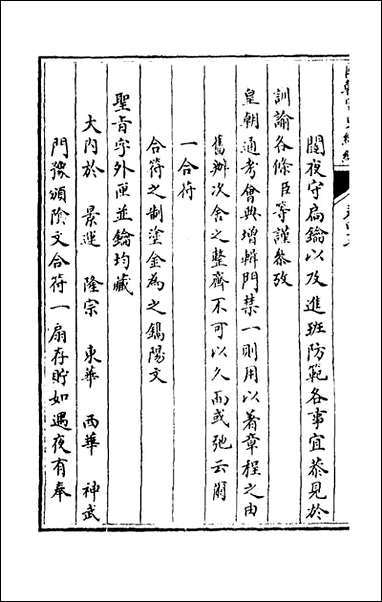 閤夜守扃鑰以及進班防範各事宜恭見於
訓諭各條臣等謹叅攷
皇朝通考會典增輯門禁一則用以著章程之由
舊辦次舍之整齊不可以久而或弛云爾
一合符
合符之制塗金為之鐫陽文
聖旨字外匣並鑰均藏
大内於　景運　隆宗　東華　西華　神武
門豫頒陰文合符一扇存貯如遇夜有奉